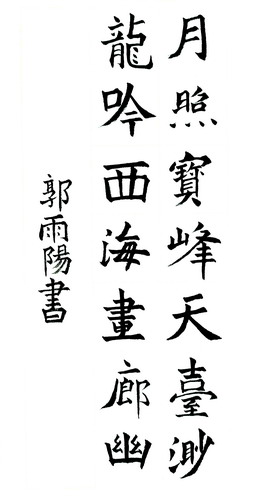 月照寶峰天臺渺
龍吟西海畫廊幽
郭雨陽書